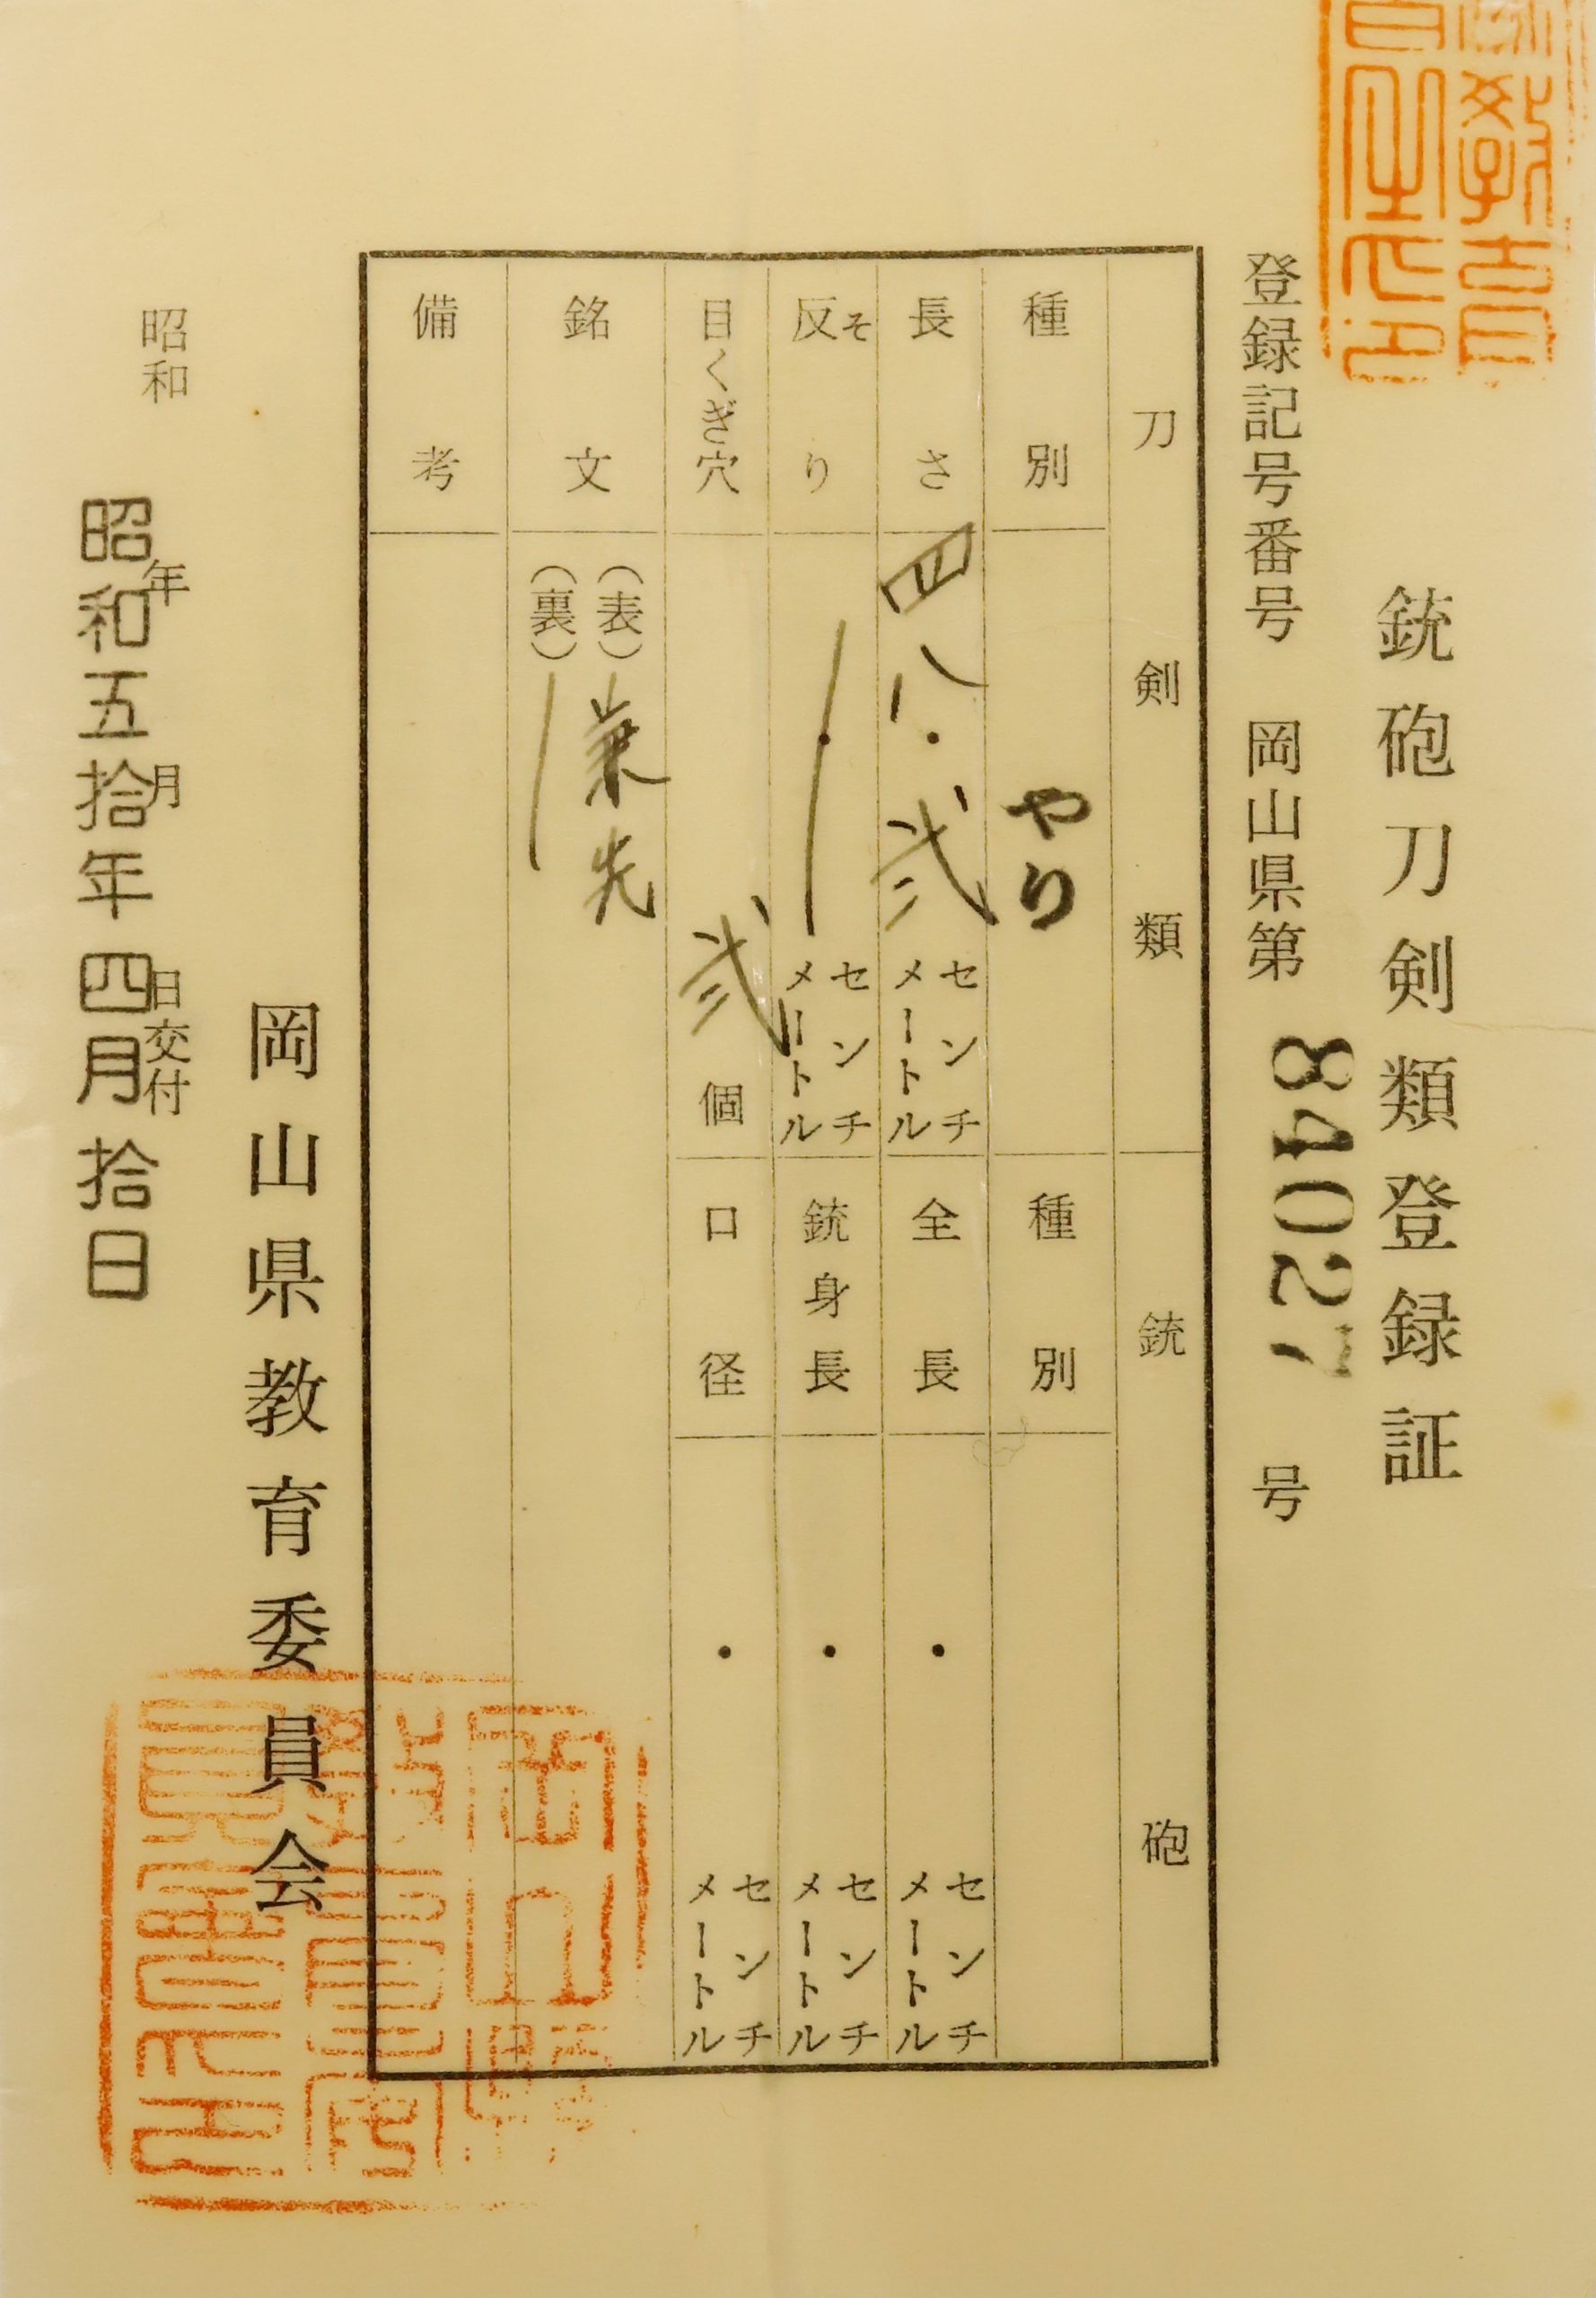 銃砲刀剣類登録証
登録記号番号 岡山県第 84027 号
刀剣類
種別 やり
長さ 四八・弐 センチメートル
反り そ ・ センチメートル
目くぎ穴 弐 個
銘文 (表) 兼光
(裏)
備考
銃砲
種別
全長 ・ センチメートル
銃身長 ・ センチメートル
口径 ・ センチメートル
岡山県教育委員会
昭和 年 月 日交付
昭和五拾年四月拾日